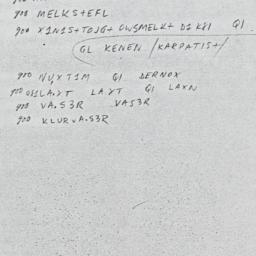 900 MELKS+EFL
900 X1N1S+TOJG+ OWSMELK+ D1 K81 G1
GL KENEN /KARPATIS+/
900 NUXT1M G1 DERNOX
LAXT G1 LAXN
900 VA.S3R VAS3R
900 KLURVA.S3R